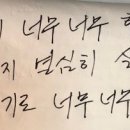 너무 너무
지 열심히
기로 너무 너무